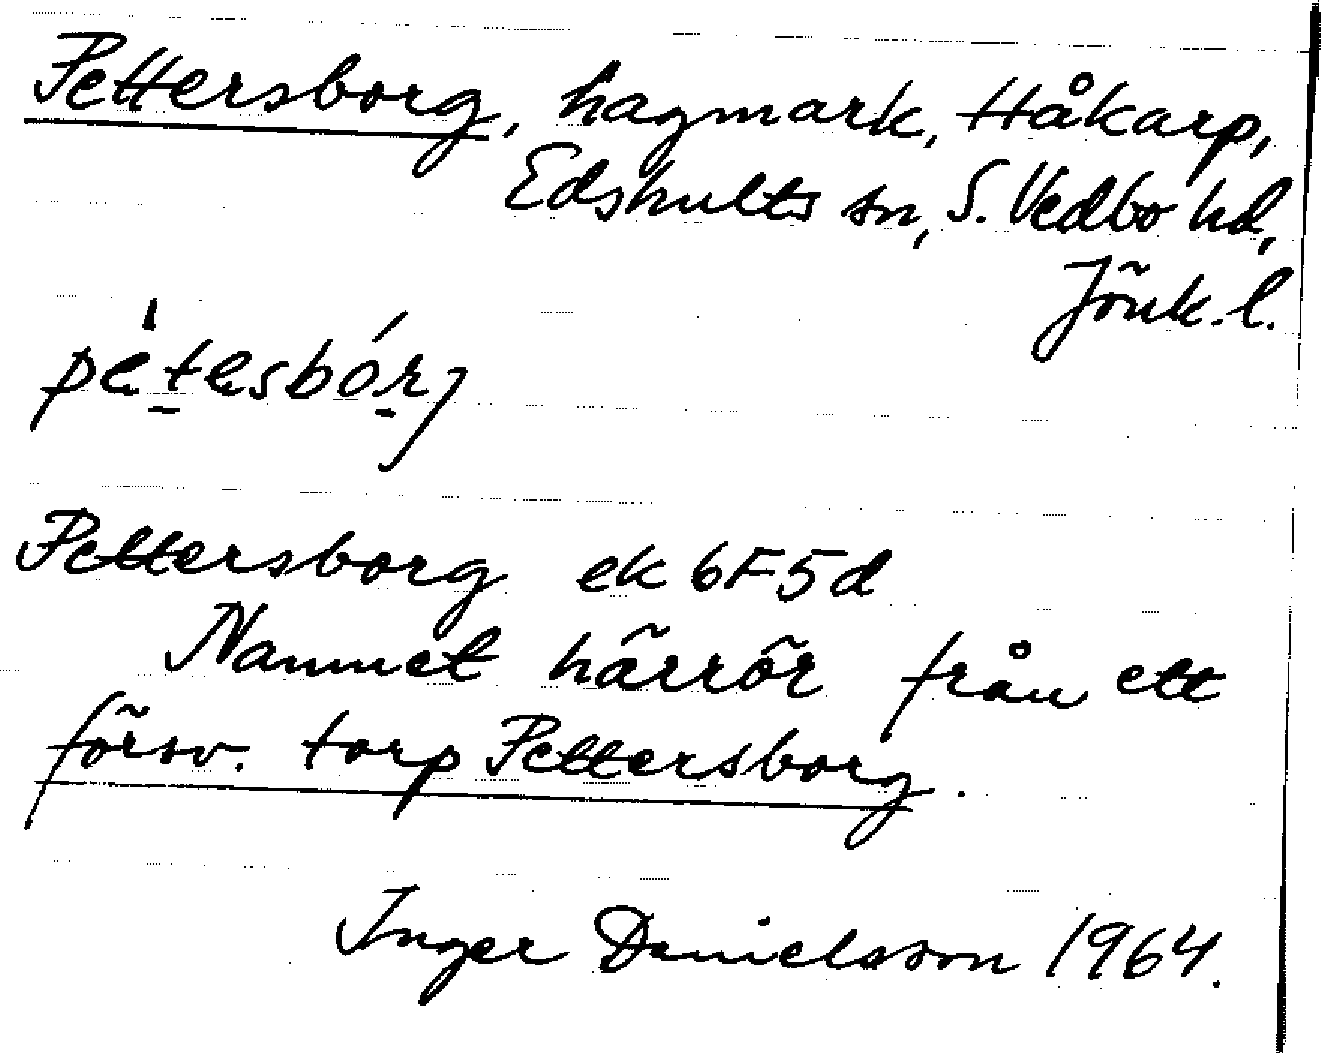 Pettersborg, hagmark, Håkarp,
Edshults sn, S. Vedbo hd,
Jönk. l.
Pettersborg ek 6F5d
Namnet härrör från ett
försv. torp Pettersborg.
Inger Danielsson 1964.